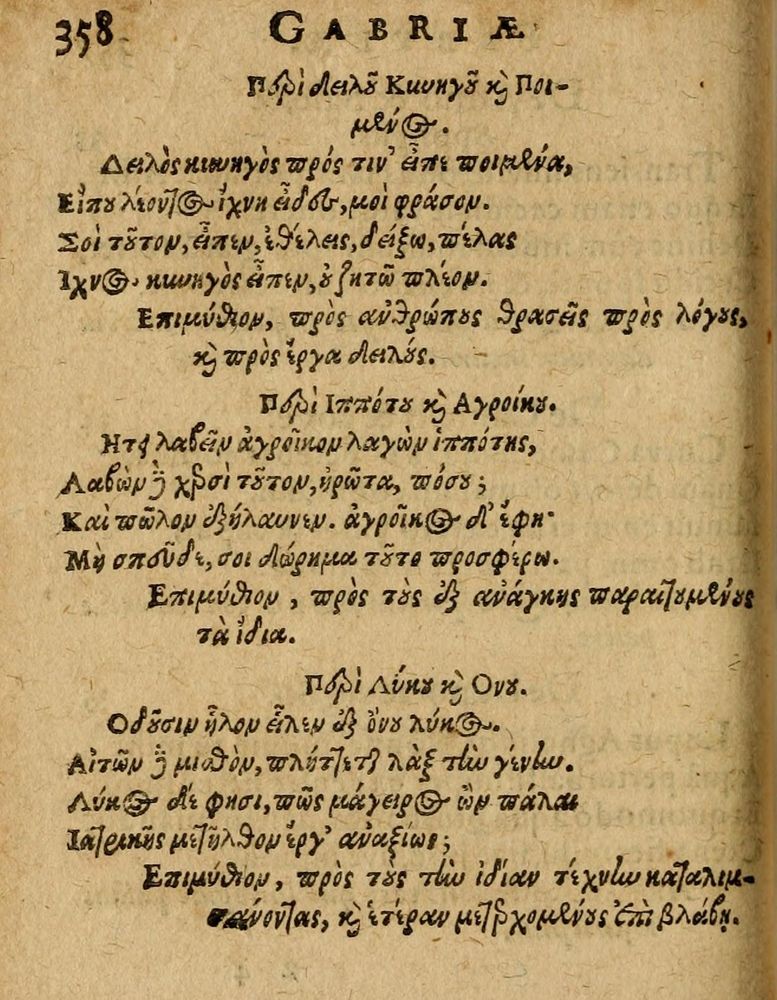 358 GABRIÆ
Περὶ δειλοῦ Κυνηγοῦ καὶ Ποι-
μένος.
Δειλὸς κυνηγὸς πρός τιν' εἶπε ποιμένα,
Εἴπου λέοντος ἴχνη εἶδες, μοὶ φράσον.
Σοὶ τοῦτον, εἶπεν, ἐθέλεις, δείξω, πέλας
Ιχνος κυνηγὸς εἶπεν, οὐ ζητῶ πλέον.
Επιμύθιον, πρὸς ανθρώπους θρασεῖς πρὸς λόγους,
καὶ πρὸς ἔργα δειλούς.
Περὶ Ιππότου καὶ Αγροίκου.
Ητει λαβεῖν ἀγροῖκον λαγὼν ἱππότης,
Λαβὼν δὲ χερσὶ τοῦτον, ἠρῶτα, πόσου;
Καὶ πῶλον ἐξήλαυνεν. ἀγροῖκος δ' ἔφη·
Μὴ σπεῦδε, σοι δώρημα τοῦτο προσφέρω.
Επιμύθιον, πρὸς τοὺς ἐξ ανάγκης παραιτουμένους
τὰ ἴδια.
Περὶ Λύκου καὶ Ονου.
Οδοῦσιν ἧλον εἷλεν ἐξ ὄνου λύκος.
Αἰτῶν δὲ μισθὸν, πλήττεται λὰξ τὴν γένυν.
Λύκος δέ φησι, πῶς μάγειρος ὢν πάλαι
Ιατρικῆς μετῆλθον ἔργ' αναξίως;
Επιμύθιον, πρὸς τοὺς τὴν ἰδίαν τέχνην καταλιμ-
πάνοντας, καὶ ἑτέραν μετερχομένους ἐπὶ βλάβῃ.